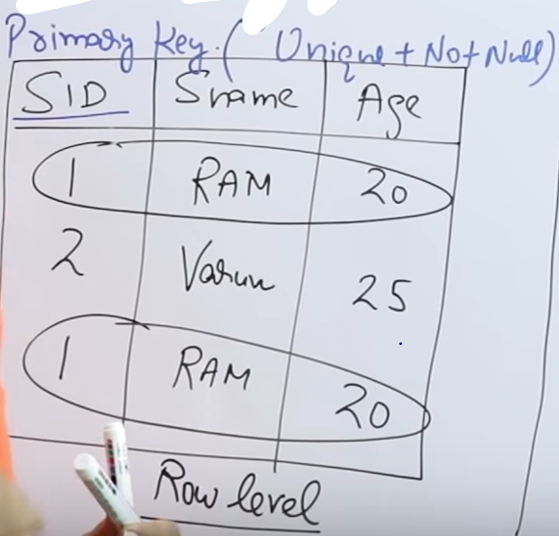 Primary Key. ( Unique + Not Null)
SID Sname Age
1 RAM 20
2 Varun 25
1 RAM 20
Row level